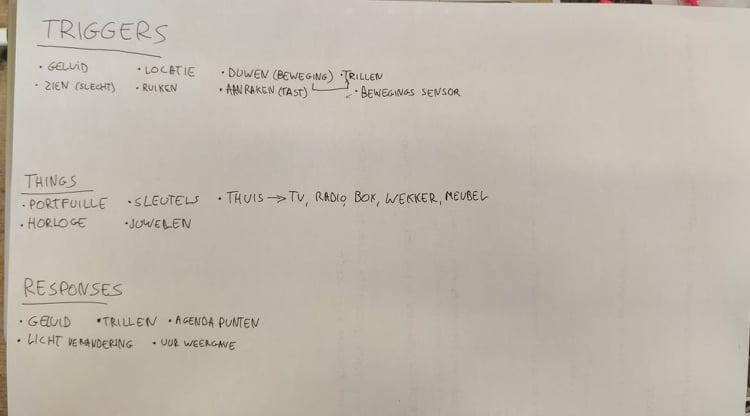 TRIGGERS
• GELUID • LOCATIE • DUWEN (BEWEGING) • TRILLEN
• ZIEN (SLECHT) • RUIKEN • AANRAKEN (TAST) • BEWEGINGS SENSOR
THINGS
• PORTFUILLE • SLEUTELS • THUIS → TV, RADIO, BOX, WEKKER, MEUBEL
• HORLOGE • JUWELEN
RESPONSES
• GELUID • TRILLEN • AGENDA PUNTEN
• LICHT VERANDERING • UUR WEERGAVE